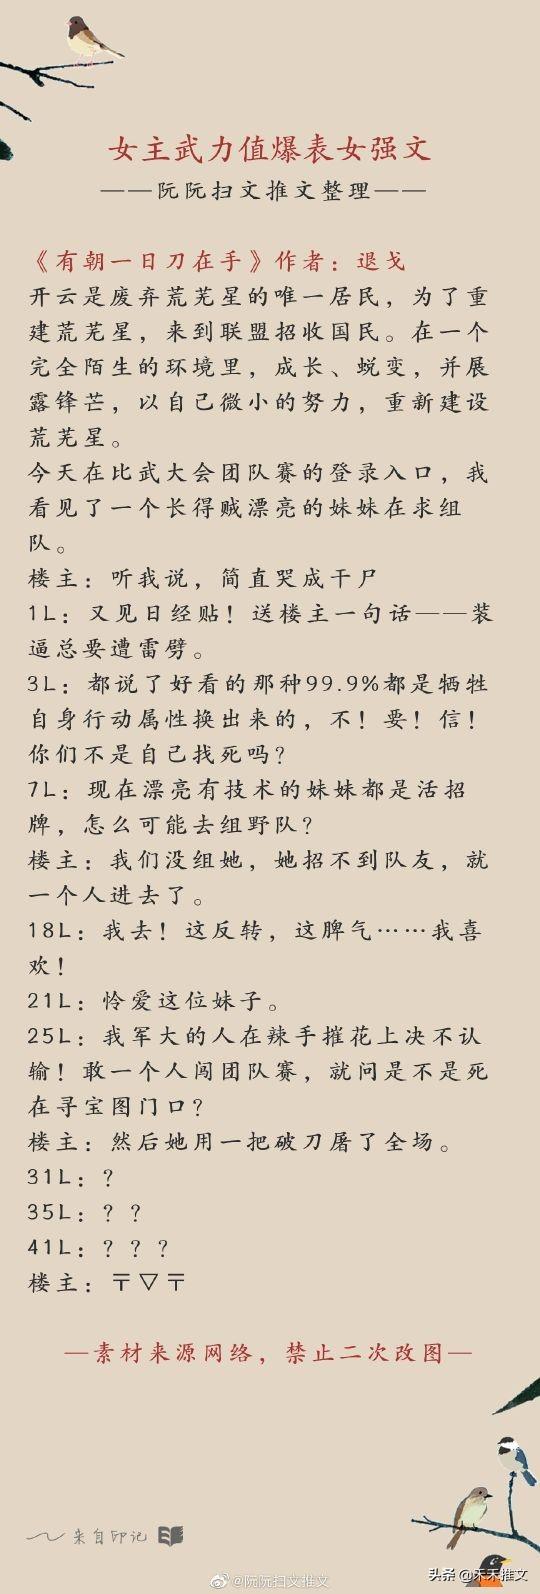 女主武力值爆表女强文
——阮阮扫文推文整理——
《有朝一日刀在手》作者：退戈
开云是废弃荒芜星的唯一居民，为了重
建荒芜星，来到联盟招收国民。在一个
完全陌生的环境里，成长、蜕变，并展
露锋芒，以自己微小的努力，重新建设
荒芜星。
今天在比武大会团队赛的登录入口，我
看见了一个长得贼漂亮的妹妹在求组
队。
楼主：听我说，简直哭成干尸
1L：又见日经贴！送楼主一句话——装
逼总要遭雷劈。
3L：都说了好看的那种99.9%都是牺牲
自身行动属性换出来的，不！要！信！
你们不是自己找死吗？
7L：现在漂亮有技术的妹妹都是活招
牌，怎么可能去组野队？
楼主：我们没组她，她招不到队友，就
一个人进去了。
18L：我去！这反转，这脾气……我喜
欢！
21L：怜爱这位妹子。
25L：我军大的人在辣手摧花上决不认
输！敢一个人闯团队赛，就问是不是死
在寻宝图门口？
楼主：然后她用一把破刀屠了全场。
31L：？
35L：？？
41L：？？？
楼主：〒▽〒
—素材来源网络，禁止二次改图—
来自印记
@阮阮扫文推文
头条 @禾禾推文